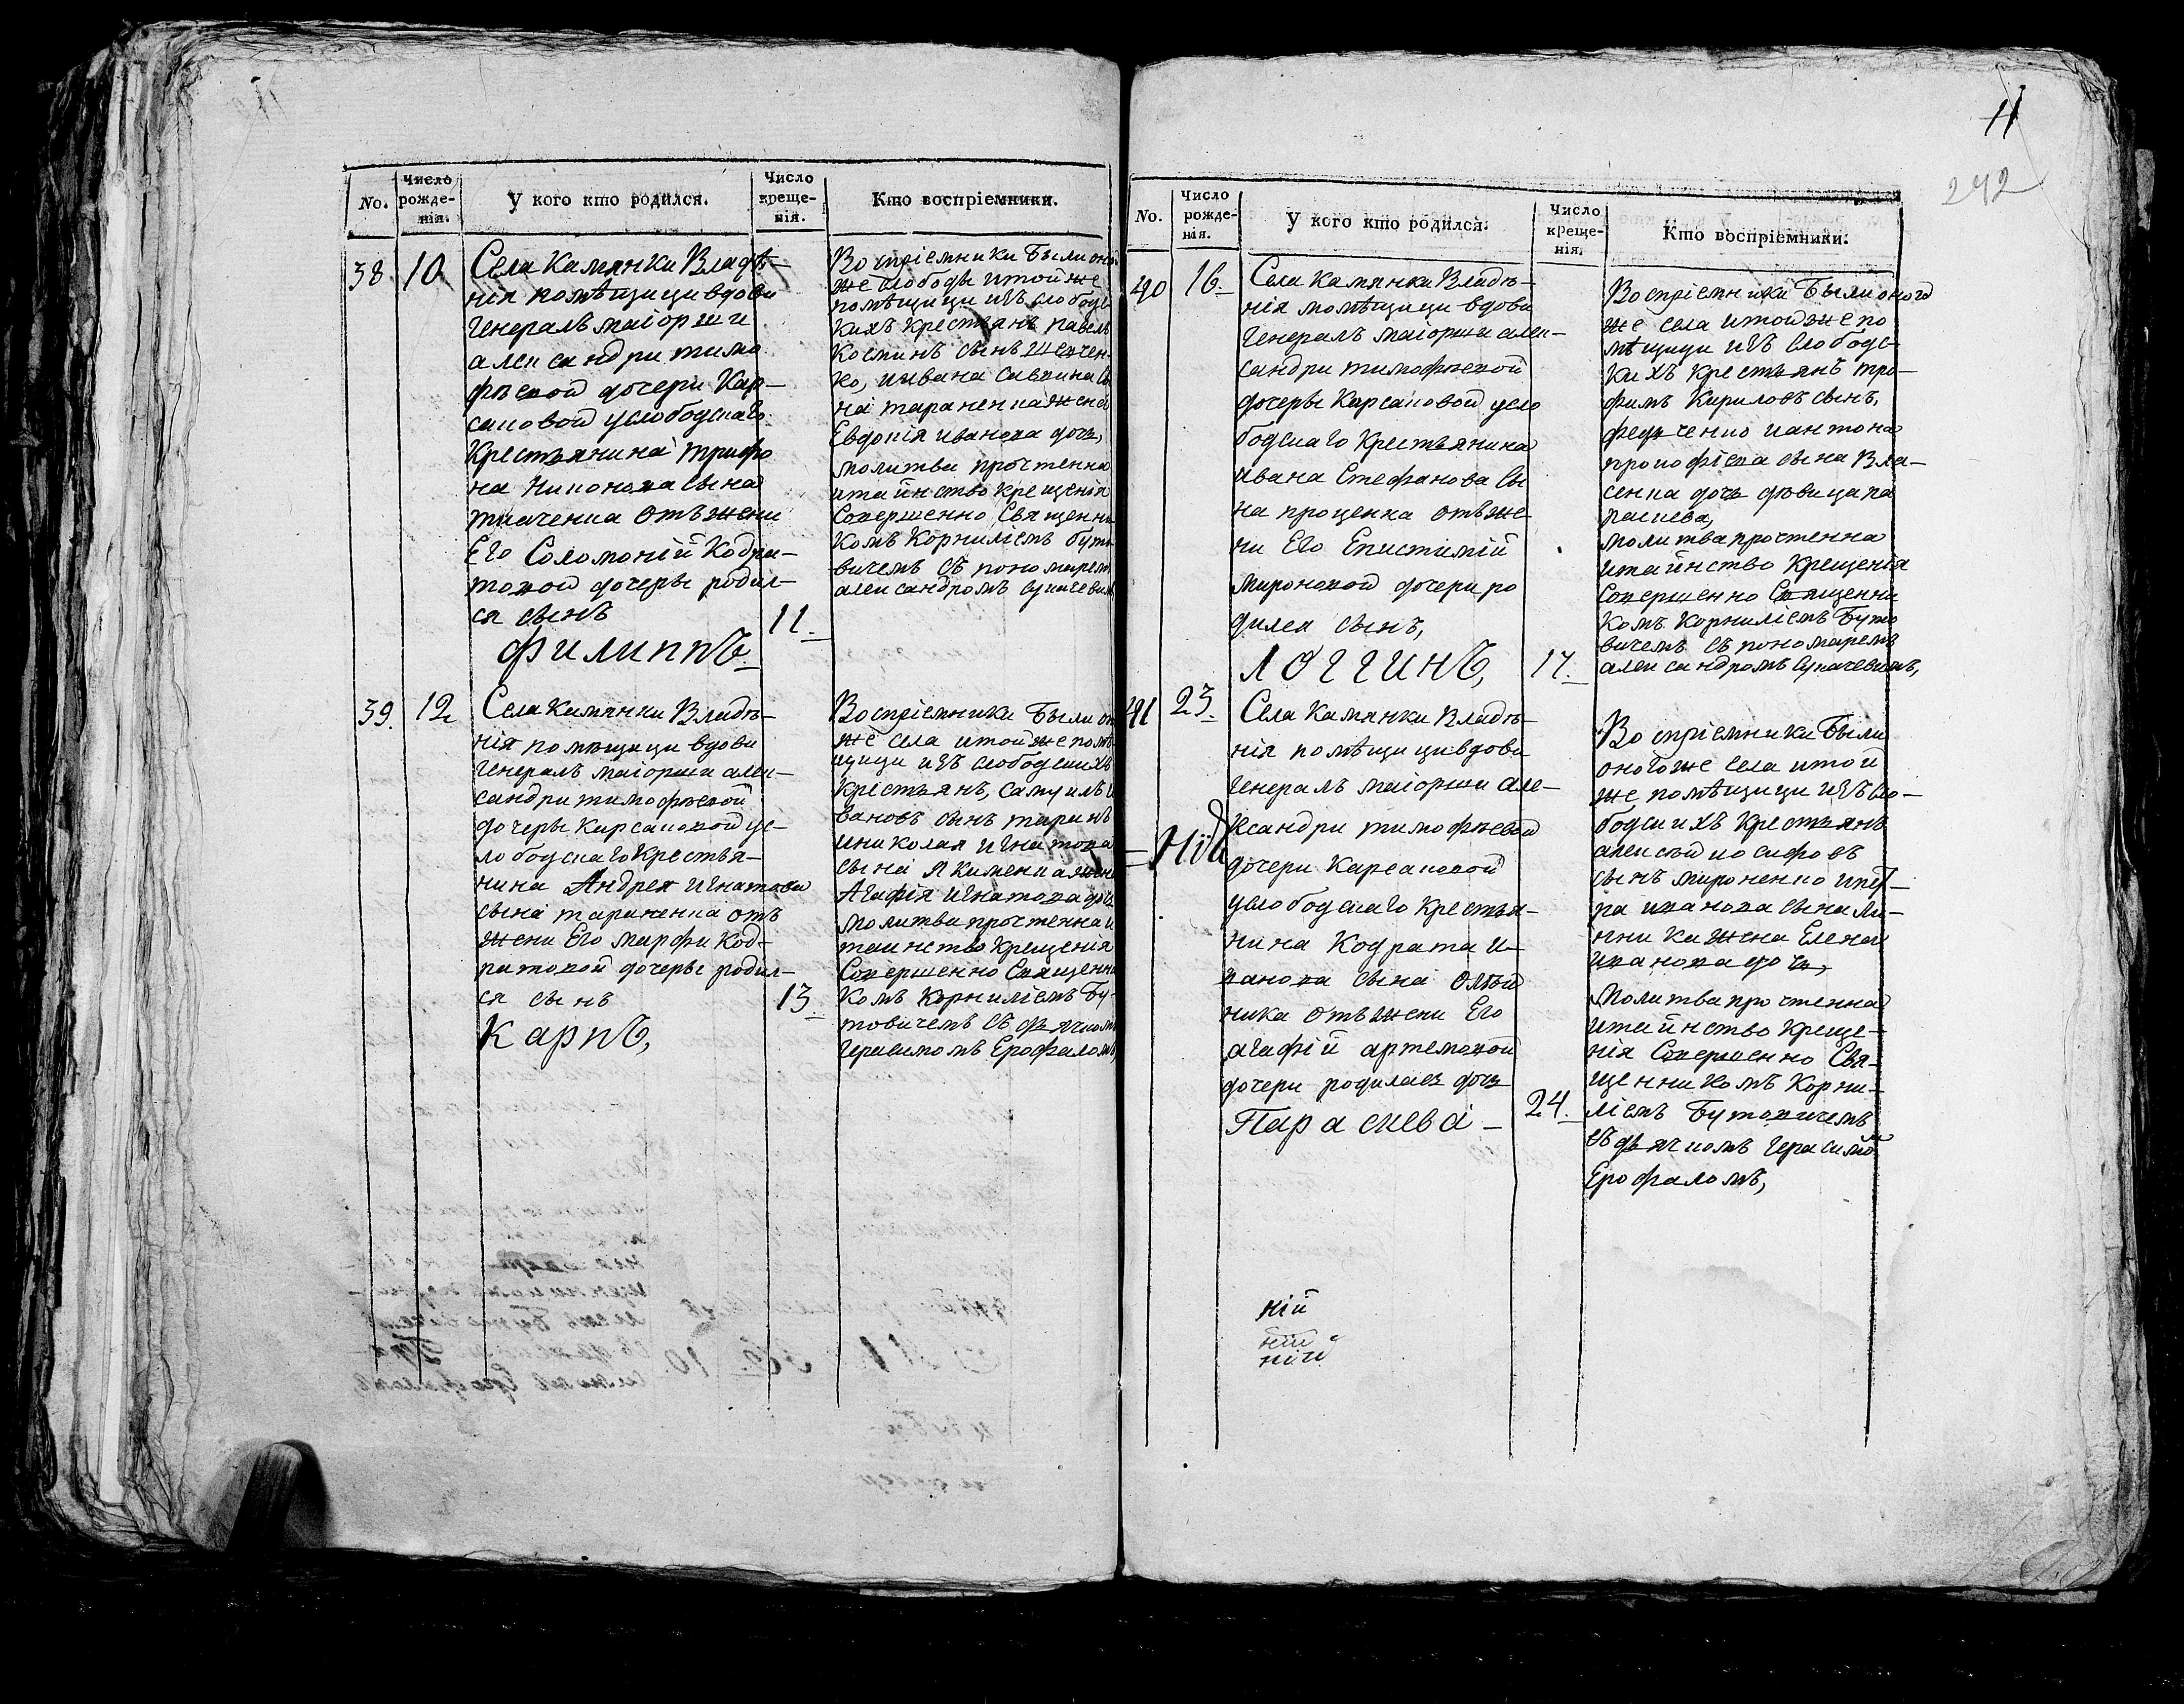 11
242
No.
Число рожде-нія.
У кого кто родился.
Число креще-нія.
Кто воспріемники.
38.
10
Села Камянки Владѣ-
нія помѣщици вдови
Генералъ маіорши
александри тимо
фѣевой дочери Кар-
саковой услободскаго
Крестьянина Трифо
на Никонова сына
ткаченка отъ жени
Его Соломоній Кодра-
товой дочери родил-
ся сынъ
Филиппъ.
11.
Воспріемники Были оной
же слободы итой же
помѣщици изъ слободс
кихъ крестьянъ павелъ
Косминъ сынъ
ко, иивана Саввина сы
на тараненка жена
Евдокія иванова дочь,
молитва прочтенна
итайнство крещенія
Совершенно Священни
комъ Корниліемъ буто
вичемъ съ пономаремъ
александромъ
39.
12
Села Камянки Владѣ-
нія помѣщици вдови
Генералъ маіорши алек-
сандри тимофѣевой
дочеры Карсаковой ус-
лободскаго Крестья-
нина Андрея игнатова
сына тараненка отъ
жени Его марфи Код-
ратовой дочеры родил-
ся сынъ
Карпъ,
13.
Воспріемники Были он
же села итой же помѣ
щици изъ слободскихъ
Крестьянъ, Самуилъ и
вановъ сынъ
иниколая игнатова
сына Якименка жена
Агафія игнатова дочь
молитва прочтенна и
таинство крещения
Совершенно Священни
комъ Корниліемъ Бу-
товичемъ съ дьячкомъ
герасимомъ Ерофаломъ,
No.
Число рожде-нія.
У кого кто родился.
Число креще-нія.
Кто воспріемники.
40
16.
Села Камянки Владѣ-
нія помѣщици вдови
Генералъ маіорши алек-
сандри тимофѣевой
дочеры Карсаковой усло
бодскаго Крестьянина
ивана Стефанова сы
на проценка отъ же
ни Его Епистимій
мироновой дочери ро
дился сынъ,
Логгинъ,
17.
Воспріемники Были оного
же села итой же по
мѣщици изъ слободс-
кихъ крестьянъ тро-
фимъ Кириловъ сынъ,
федченко иантона
прокофіева сына Вла-
сенка дочь дѣвица па
раскева,
молитва прочтенна
итайнство Крещенія
Совершенно Священни
комъ Корниліемъ Буто
вичемъ съ пономаремъ
александромъ
41
23.
Села Камянки Владѣ-
нія помѣщици вдови
Генералъ маіорши але-
ксандри тимофѣевой
дочери Карсаковой
услободскаго крестья-
нина Кодрата и-
ванова сына Олѣй
ника отъ жени Его
агафій артемовой
дочери родилась дочь
Параскева -
24.
Воспріемники Были
оного же села итой
же помѣщици изъ сло-
бодскихъ Крестьянъ
алексѣй иосифовъ
сынъ мироненко ипет-
ра иванова сына
жена Елена
иванова дочь,
молитва прочтенна
итайнство креще-
нія Совершенно Свя-
щенникомъ Корни-
ліемъ Бутовичемъ
съ дьячкомъ герасимом
Ерофаломъ,
ній
ній
ній